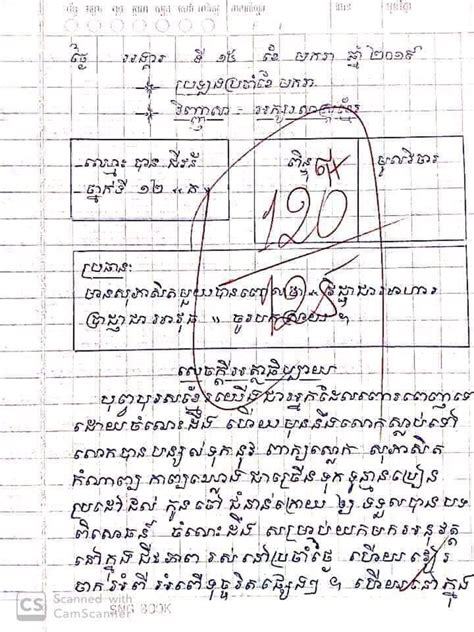 ថ្ងៃ អង្គារ ទី ១៥ ខែ មករា ឆ្នាំ ២០១៩
ប្រឡងប្រចាំខែ មករា
វិញ្ញាសា - អក្សរសាស្ត្រខ្មែរ
- ឈ្មោះ បាន
- ថ្នាក់ទី ១២ « គ »
ពិន្ទុ
មូលវិចារ
120
125
ប្រធាន:
មានសុភាសិតមួយបានពោលថា « វិជ្ជាជាអាហារ
ប្រាជ្ញាជាអាវុធ » ចូរបកស្រាយ ។
សេចក្តីអត្ថាធិប្បាយ
បុព្វបុរសខ្មែរយើងជាអ្នកដែលពោរពេញទៅ
ដោយចំណេះដឹង ហើយមុននឹងលោកស្លាប់ទៅ
លោក បាន បន្សល់ ទុក នូវ ពាក្យស្លោក សុភាសិត
កំណាព្យ កាព្យឃ្លោង ជាច្រើន ទុក ទូន្មានប្រៀន
ប្រដៅដល់ កូន ចៅ ជំនាន់ក្រោយ ឲ្យ ទទួលបាន បទ
ពិសោធន៍ ចំណេះដឹង សម្រាប់យកមកអនុវត្ត
នៅក្នុង ជីវភាព រស់នៅប្រចាំថ្ងៃ ហើយ
ចាកអំពី អំពើទុច្ចរិតផ្សេងៗ ។ ហើយនៅក្នុង
SMG BOOK
CS Scanned with
CamScanner